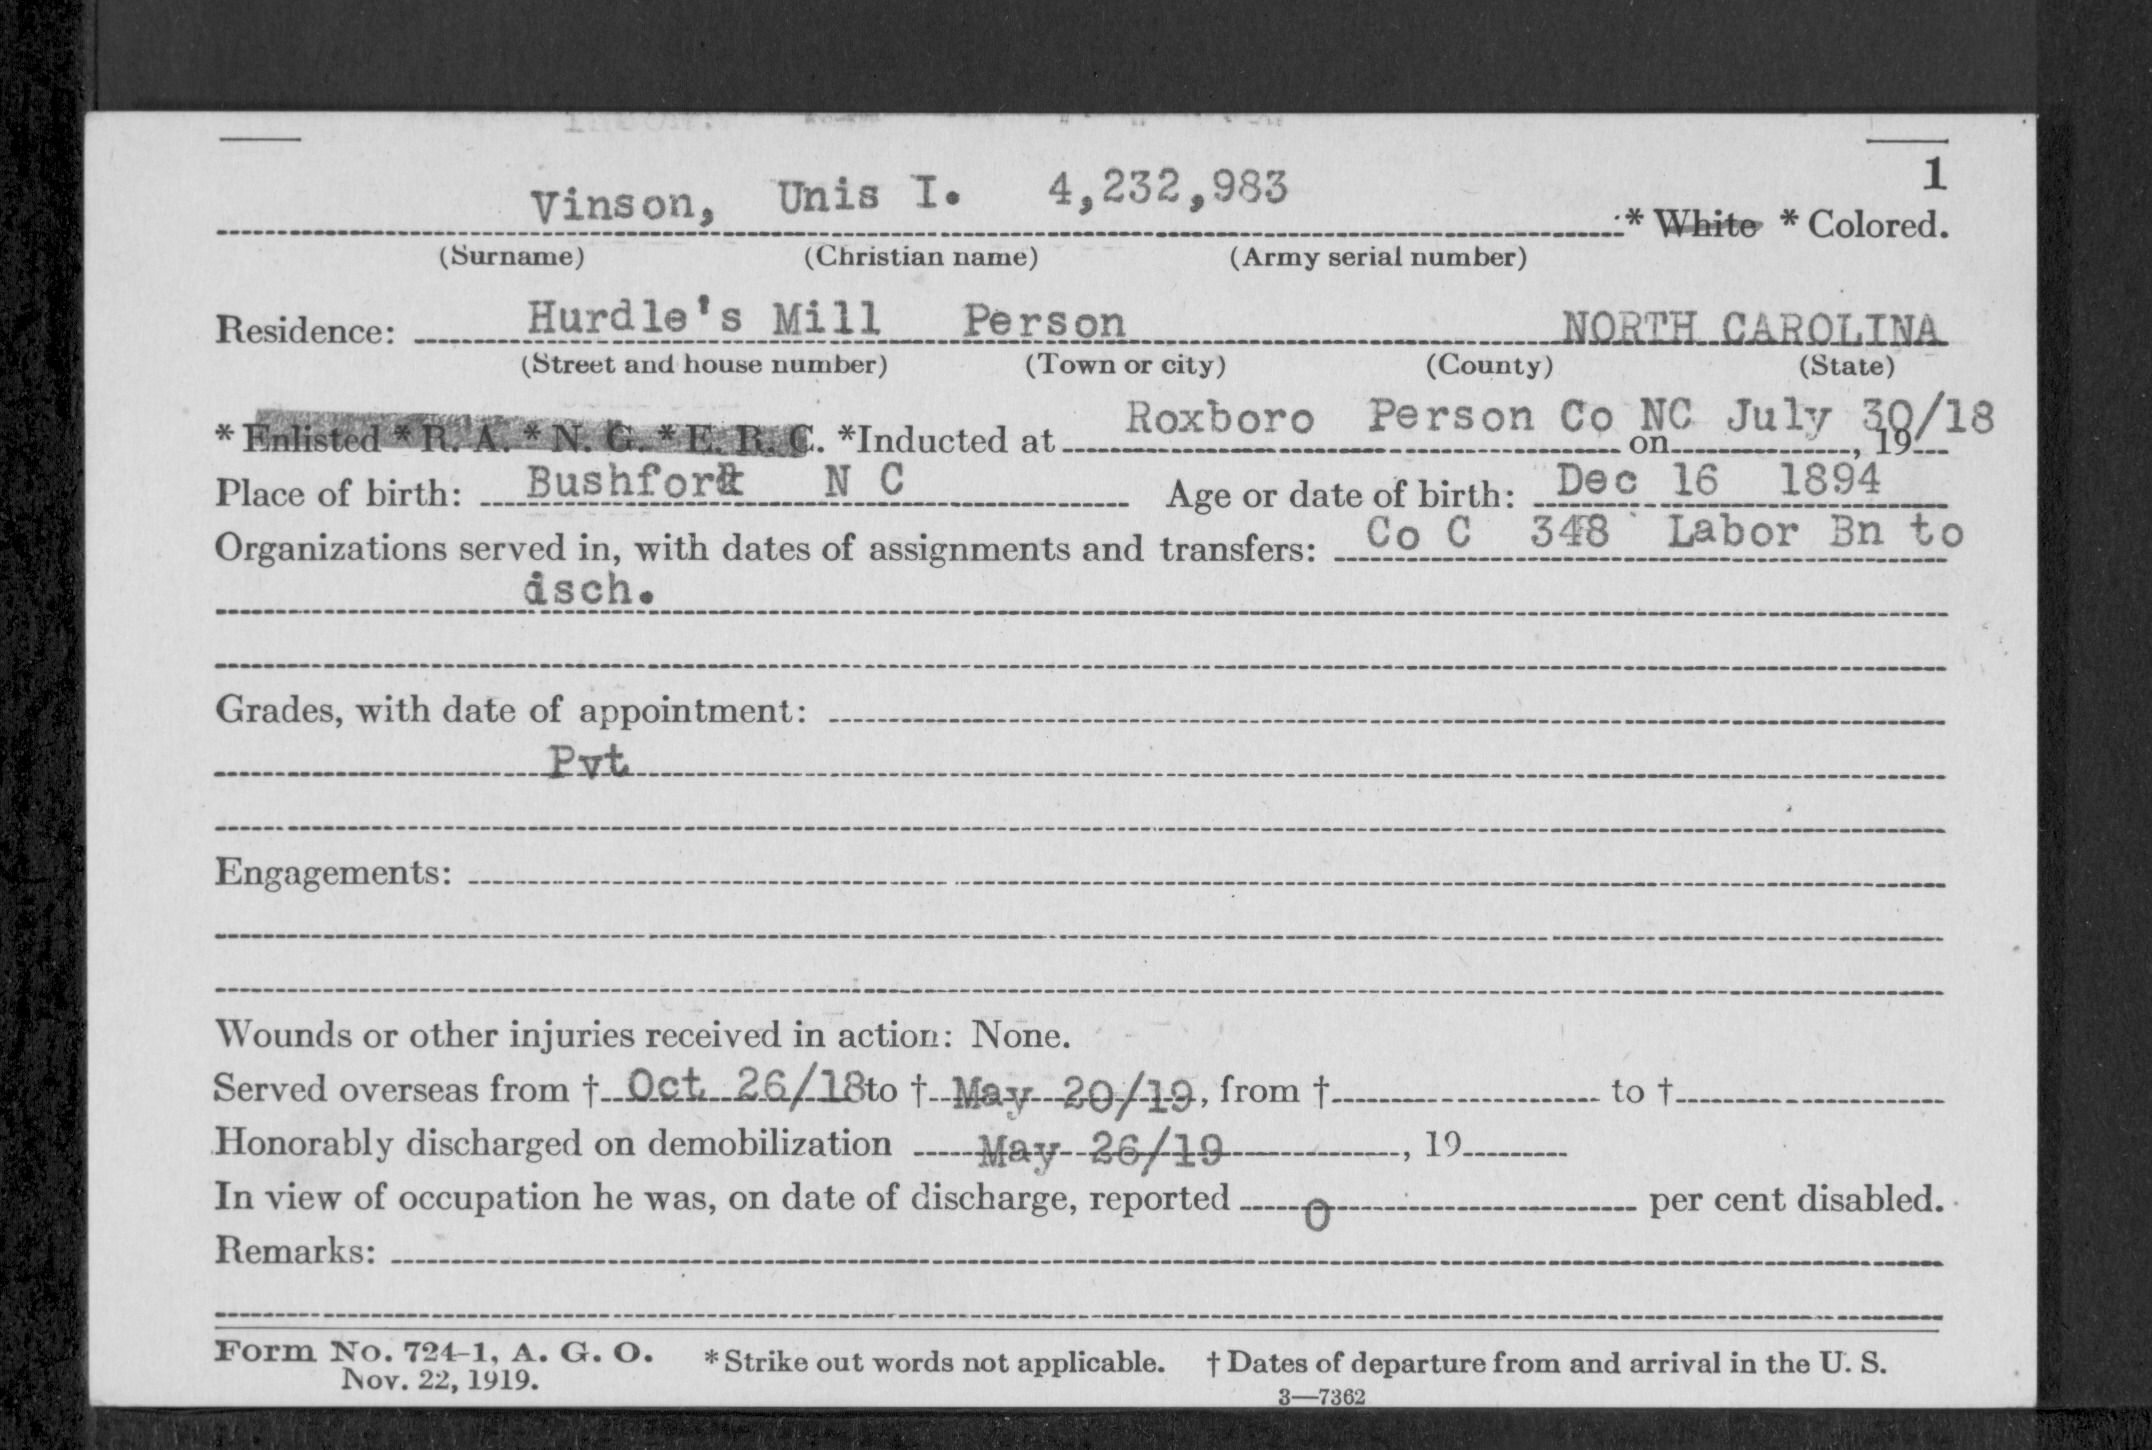 1
Vinson, Unis I. 4,232,983 * White * Colored.
(Surname) (Christian name) (Army serial number)
Residence: Hurdle's Mill Person NORTH CAROLINA
(Street and house number) (Town or city) (County) (State)
* Enlisted * R. A. * N. G. * E. R. C. *Inducted at Roxboro Person Co NC on July 30/18, 19
Place of birth: Bushfork N C Age or date of birth: Dec 16 1894
Organizations served in, with dates of assignments and transfers: Co C 348 Labor Bn to
disch.
Grades, with date of appointment:
Pvt
Engagements:
Wounds or other injuries received in action: None.
Served overseas from † Oct 26/18 to † May 20/19, from † to †
Honorably discharged on demobilization May 26/19, 19
In view of occupation he was, on date of discharge, reported 0 per cent disabled.
Remarks:
Form No. 724-1, A. G. O. * Strike out words not applicable. † Dates of departure from and arrival in the U. S.
Nov. 22, 1919.
3—7362